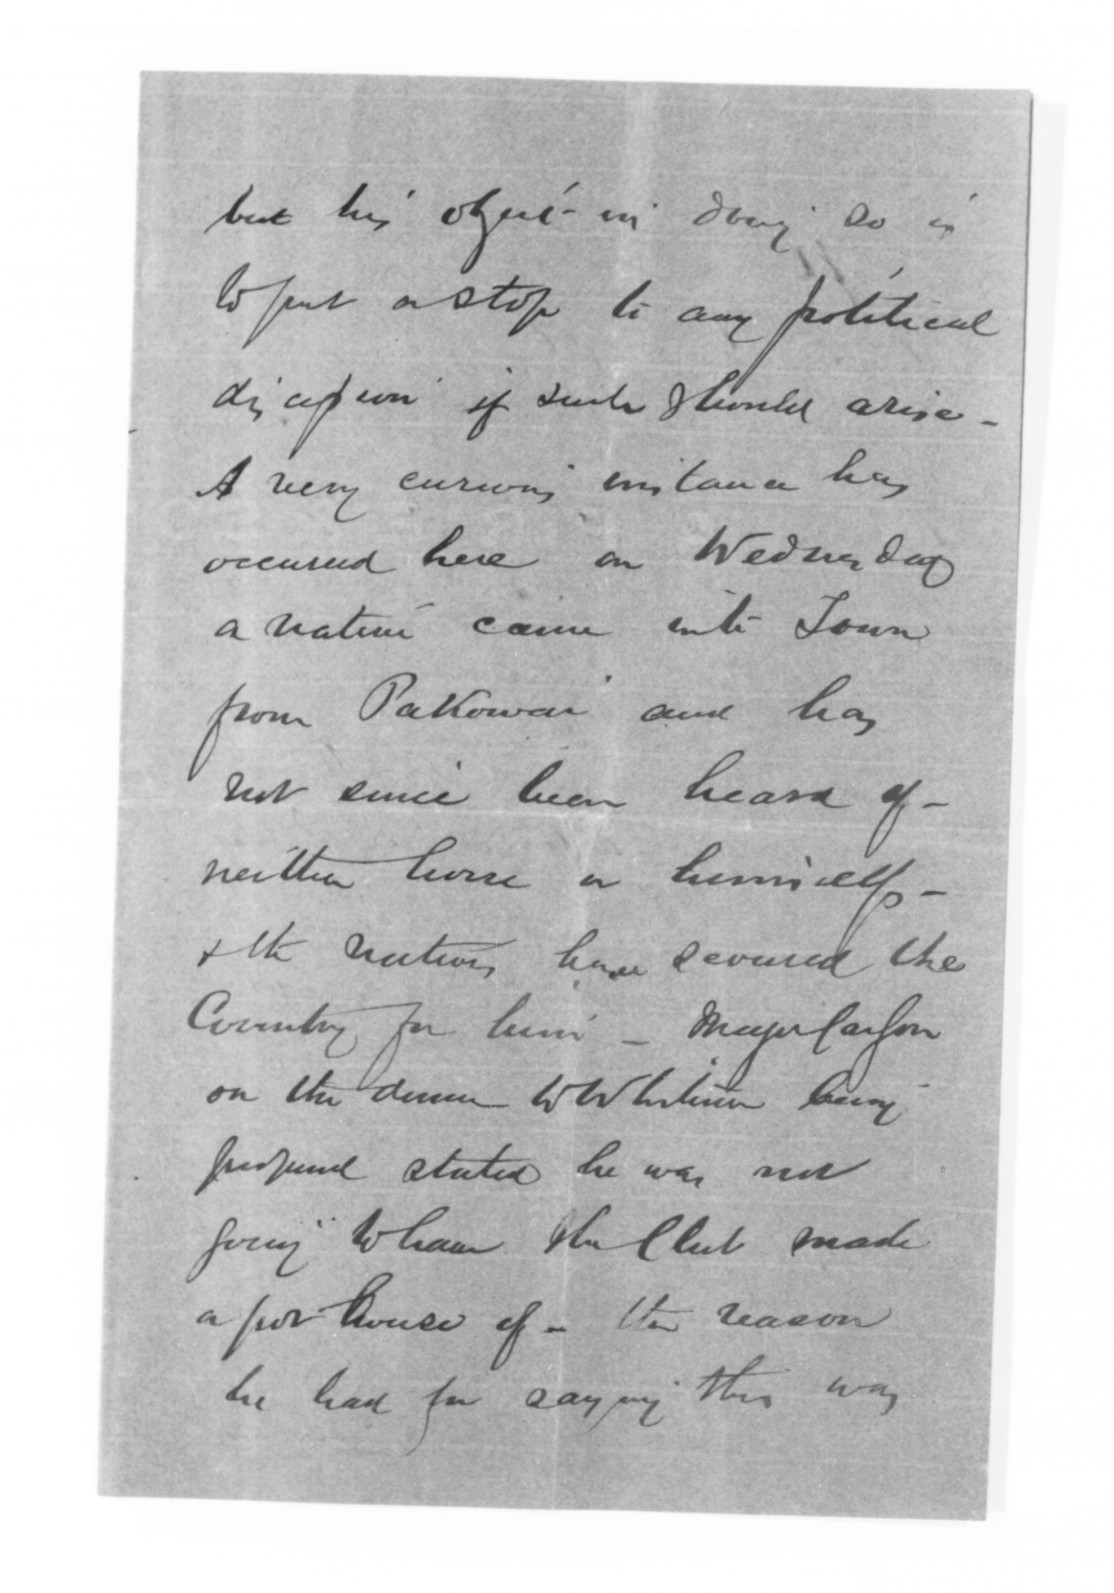 but his object in doing so is
to put a stop to any political
discussion if such should arise -
A very curious instance has
occurred here on Wednesday
a native came into Town
from Pakowai and has
not since been heard of -
neither horse or himself -
& the natives have scoured the
Country for him - Major Carlyon
on the dinner to Whitmore being
proposed stated he was not
going to have the Club made
a pot house of - the reason
he had for saying this was